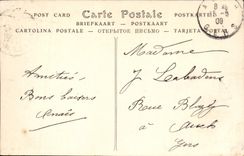 POST CARD Carte Postale POSTKARTE
BRIEFKAART — POSTKORT
CARTOLINA POSTALE — ОТКРЫТОЕ ПИСЬМО — TARJETA POSTAL
Madame
J Labadens
Rue
à Auch
Gers
Amitiés
Bons baisers